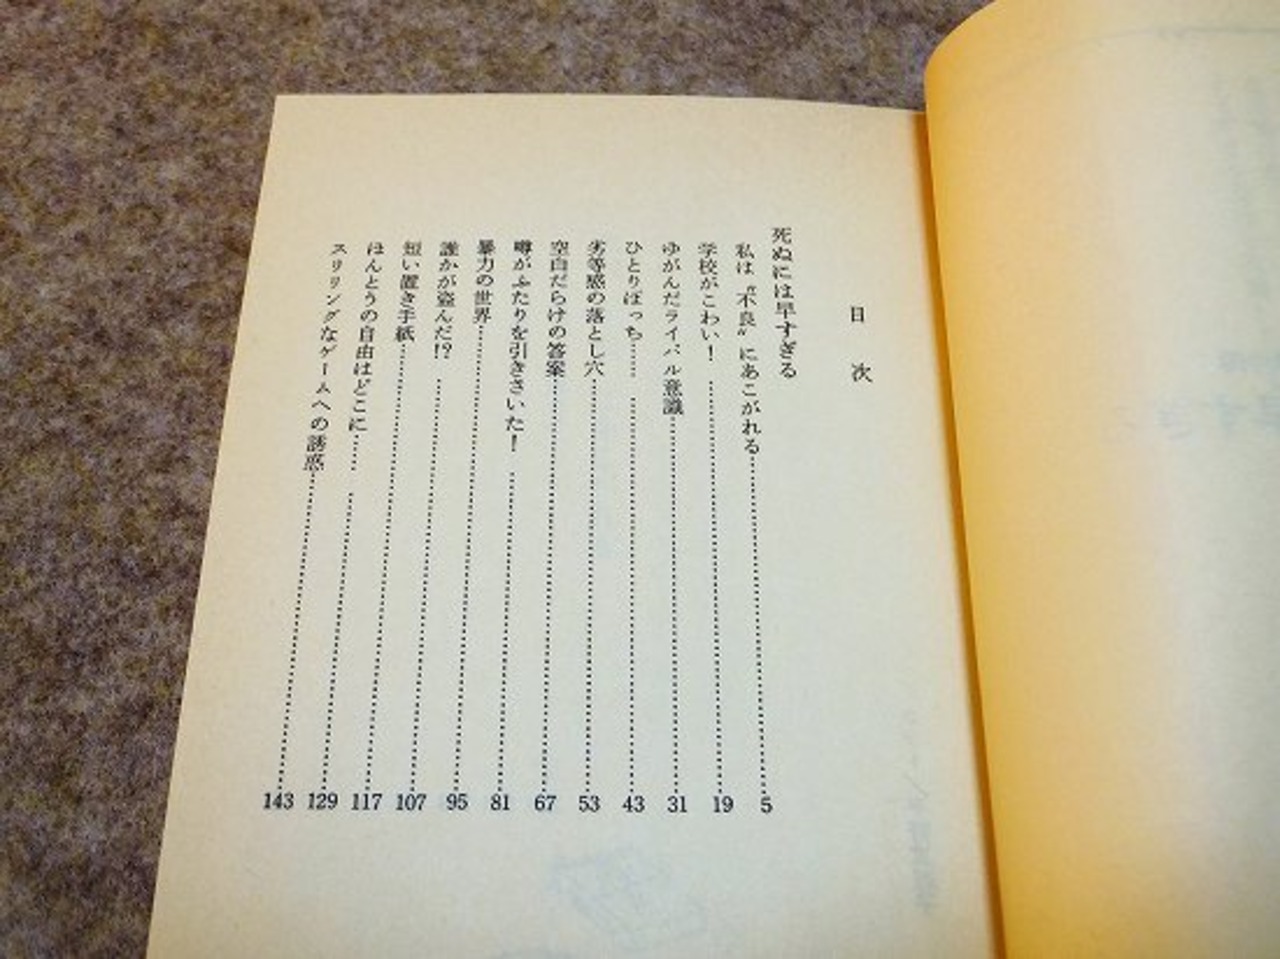 目次
死ぬには早すぎる
私は〝不良〟にあこがれる……5
学校がこわい！……19
ゆがんだライバル意識……31
ひとりぼっち……43
劣等感の落とし穴……53
空白だらけの答案……67
噂がふたりを引きさいた！……81
暴力の世界……95
誰かが盗んだ!?……107
短い置き手紙……117
ほんとうの自由はどこに……129
スリリングなゲームへの誘惑……143